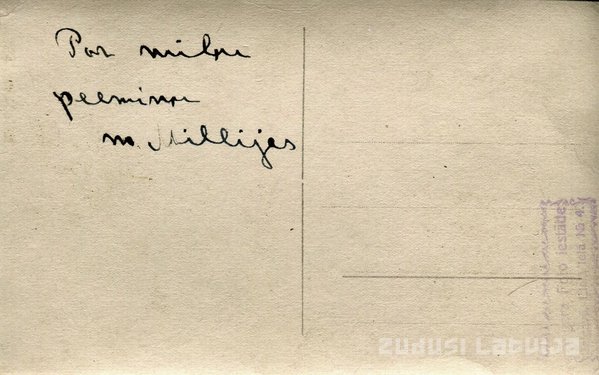 Par milu
peeminu
no Millijas
Foto iestāde
iela № 4.
zudusi Latvija